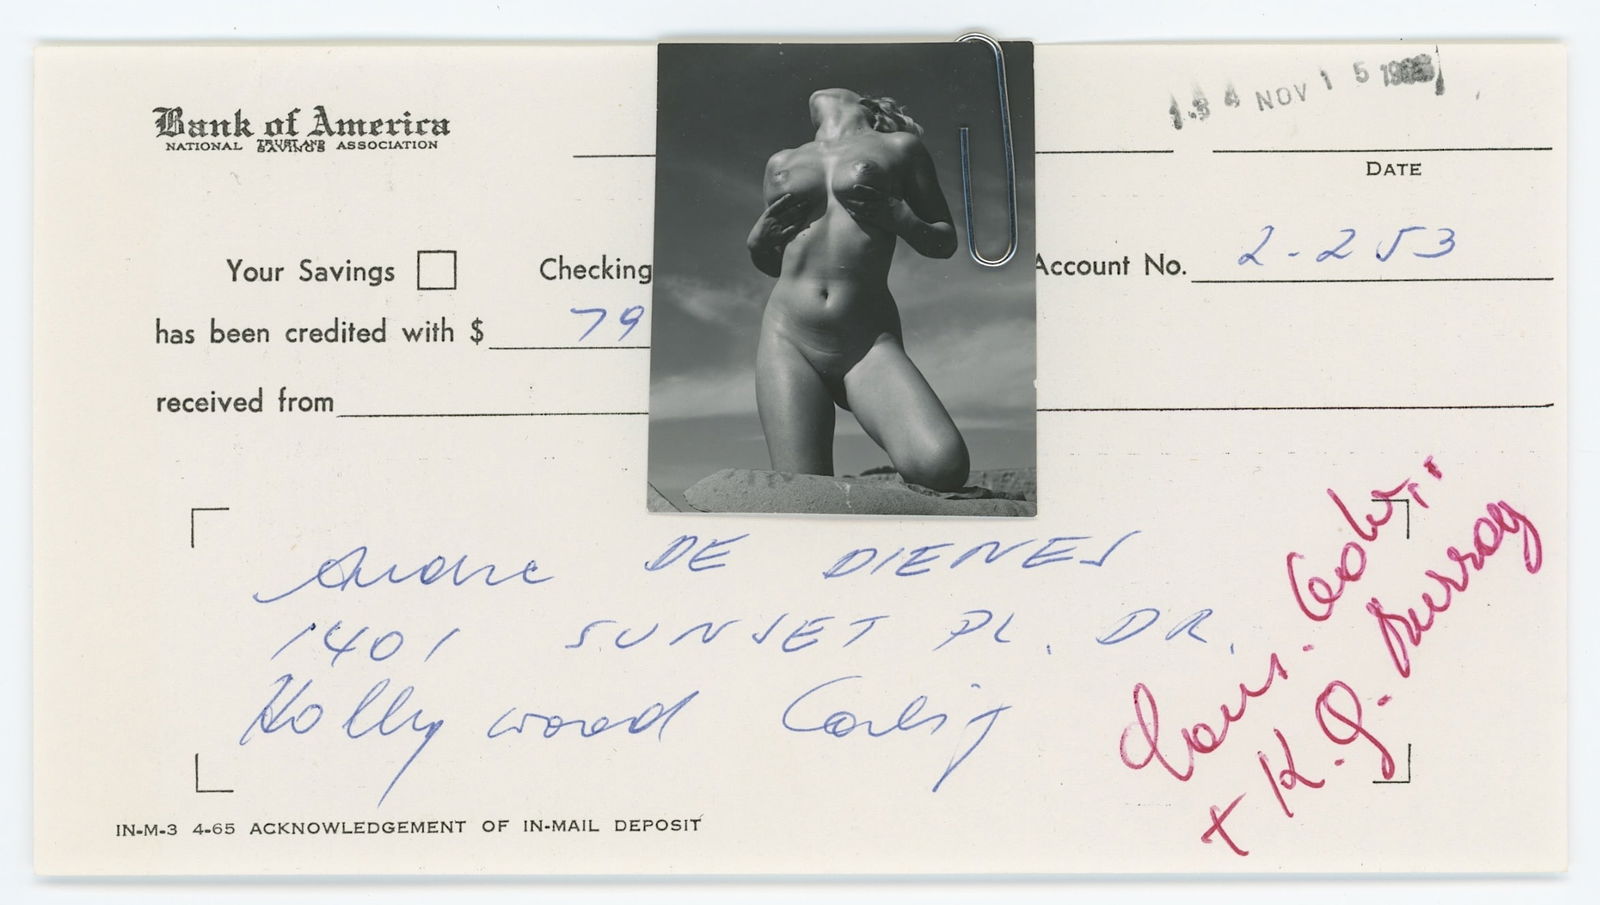 Bank of America
NATIONAL TRUST AND SAVINGS ASSOCIATION
NOV 15
DATE
Your Savings
Checking
Account No. 2-253
has been credited with $ 79
received from
Andre DE DIENES
1401 SUNSET PL. DR.
Hollywood Calif
+ K.G. Murray
IN-M-3 4-65 ACKNOWLEDGEMENT OF IN-MAIL DEPOSIT